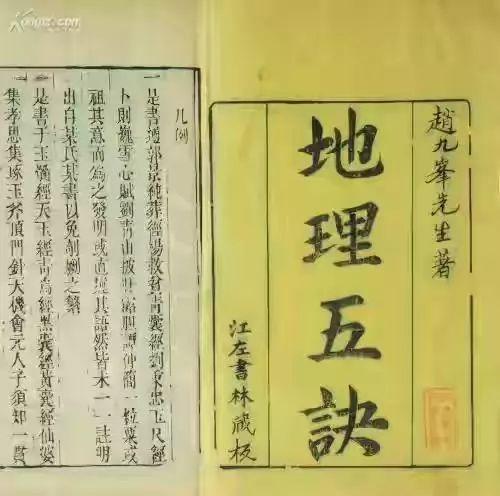 趙九峯先生著
地理五訣
江左書林藏板
凡例
一是書遵郭景純葬經楊救貧青囊經劉秉忠玉尺經
卜則巍雪心賦劉青山披肝露胆譚仲簡一粒粟或
祖其意而為之發明或直其語然皆未一一註明
出自某氏某書以免剞劂之繁
一是書于玉髓經天玉經青烏經黑囊經黃囊經仙婆
集孝思集琢玉斧頂門針天機會元人子須知一貫